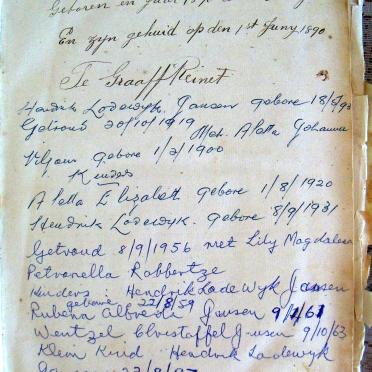 Geboren en Jaar
En zijn gehuid op den 1st Juny 1890.
Te Graaff Reinet
Hendrik Lodewyk Jansen gebore 18/5/93
Getroud 20/10/1919 Met. Aletta Johanna
Viljoen gebore 1/2/1900
Kinders
Aletta Elizabett gebore 1/8/1920
Hendrik Lodewyk. gebore 8/9/1931
Getvoud 8/9/1956 met Lily Magdalena
Petronella Robbertze
Kinders: Hendrik Lodewyk Jansen
gebore 22/8/59
Rubena Jansen 9/1/61
Wentzel Christoffel Jansen 9/10/63
Klein Kind Hendrik Lodewyk